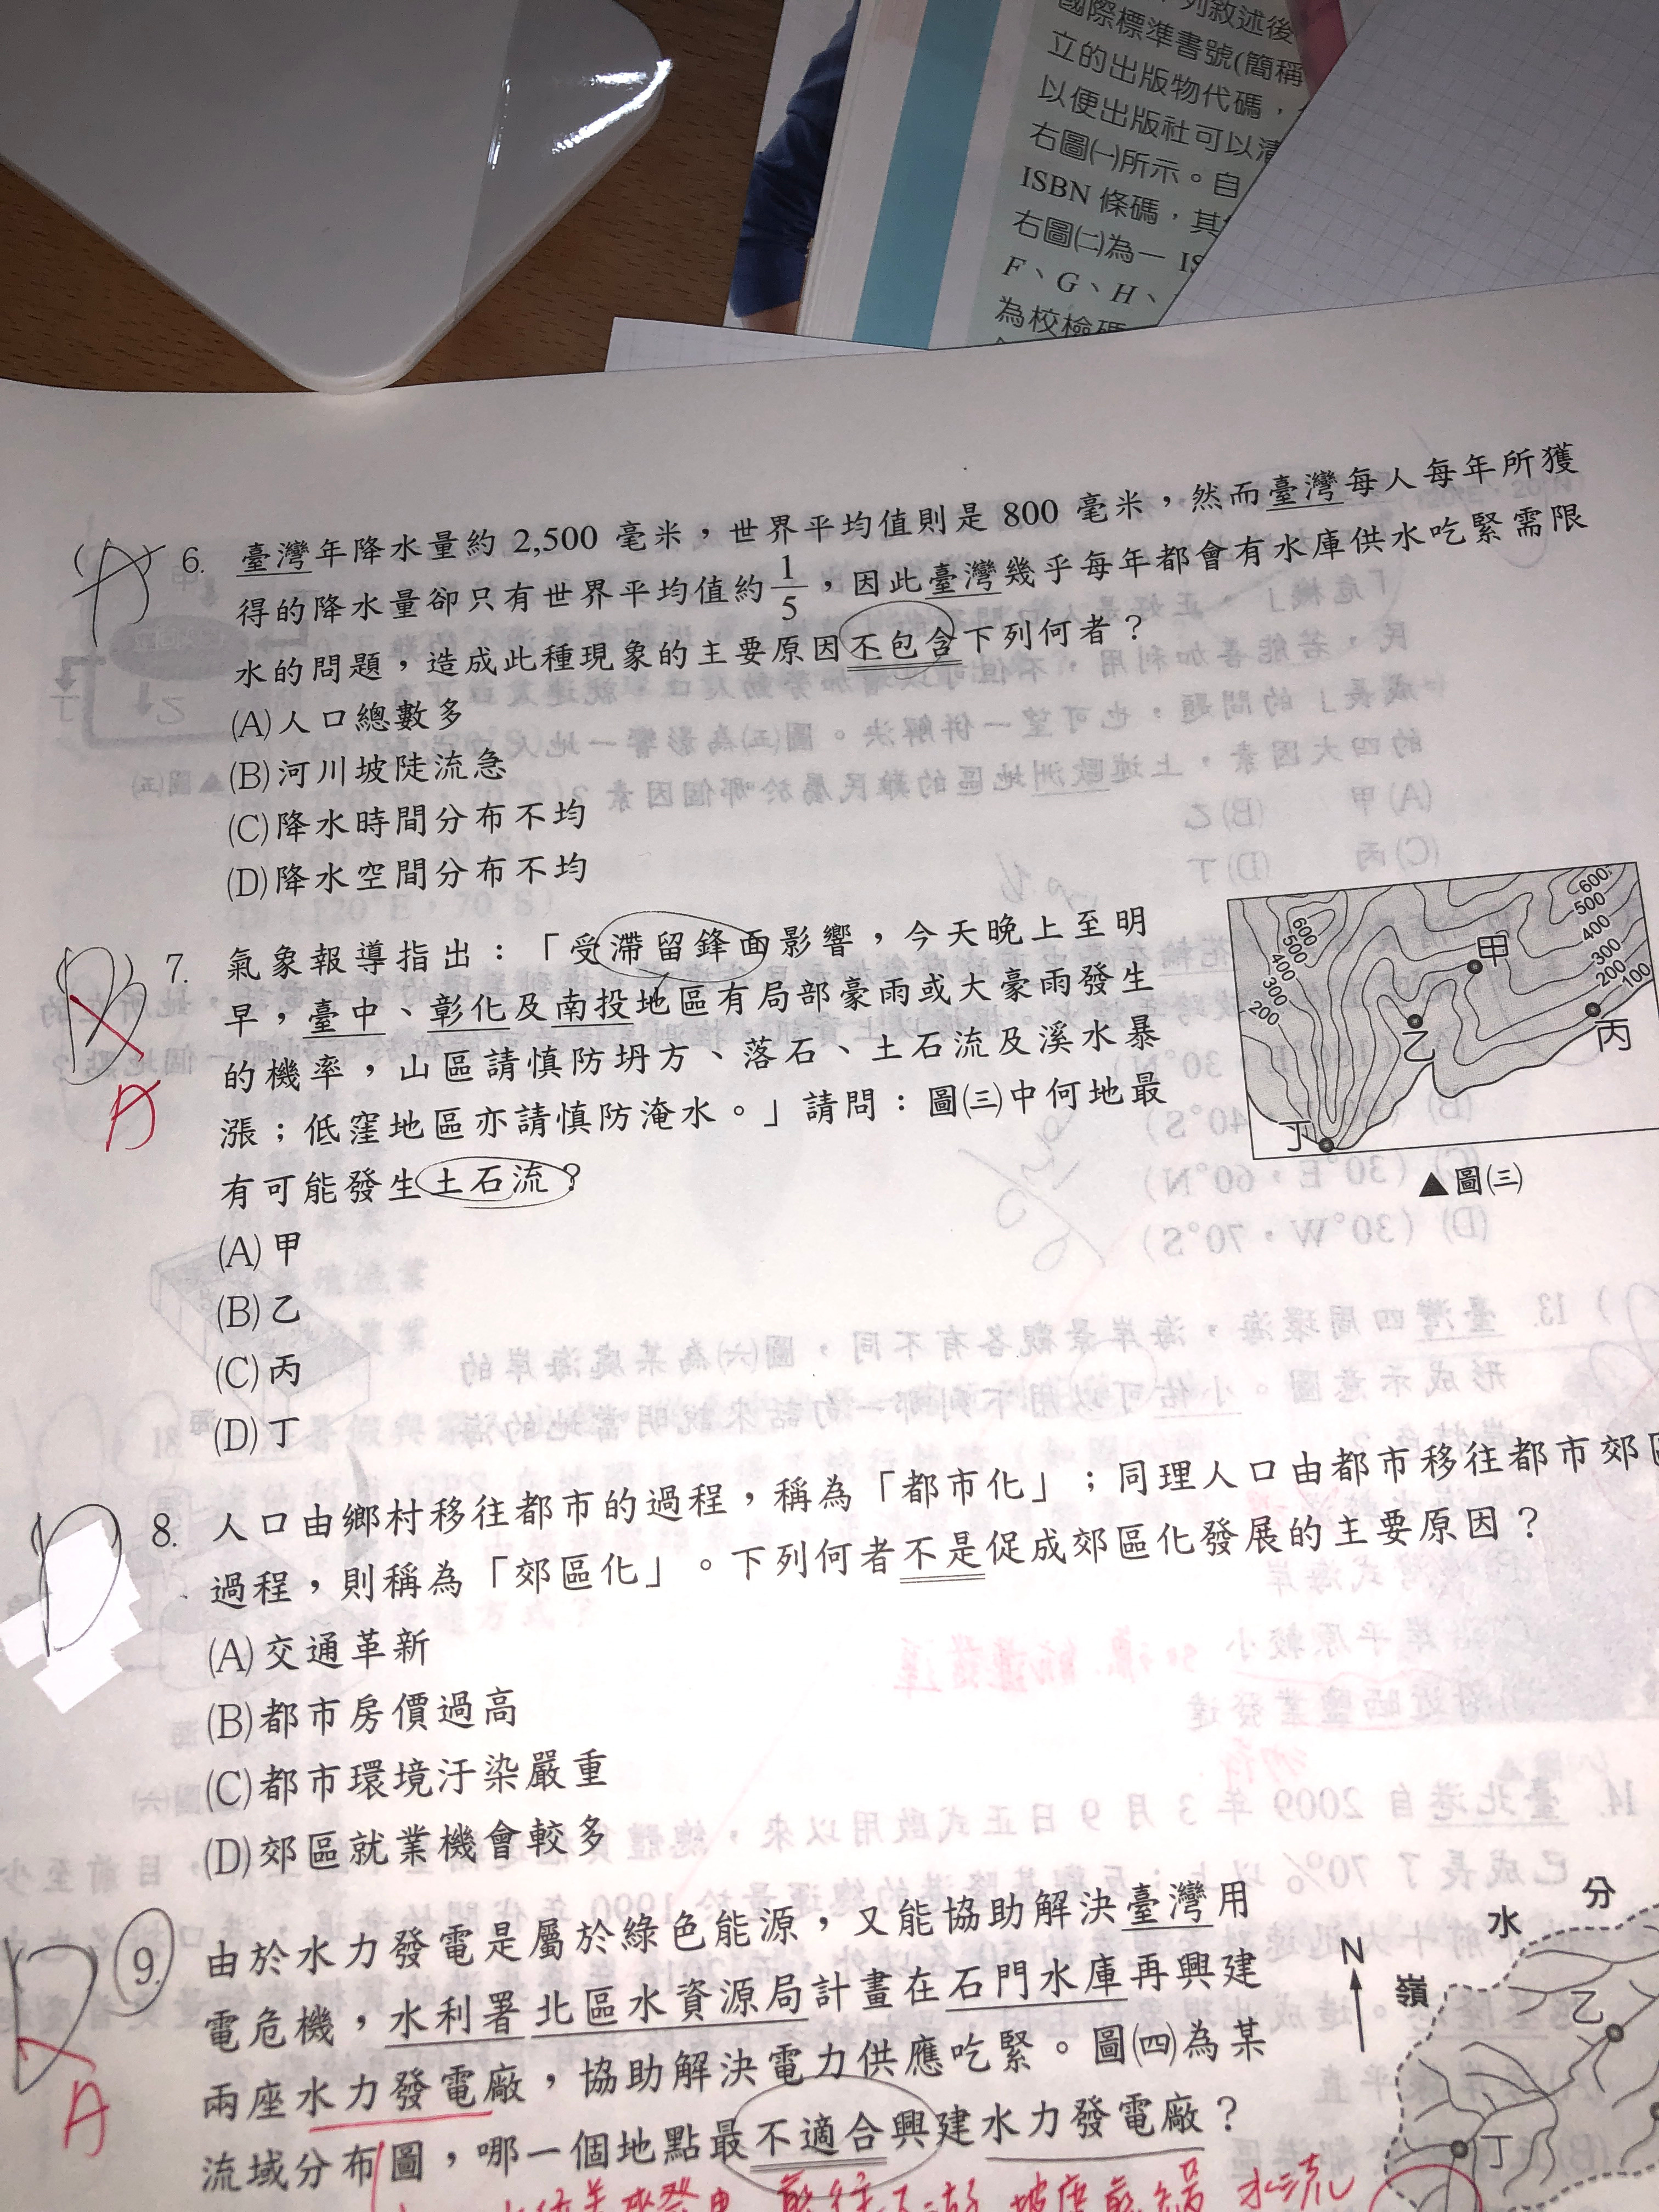 列敘述後
國際標準書號(簡稱
立的出版物代碼，
以便出版社可以清
右圖㈠所示。自
ISBN 條碼，其
右圖㈡為一 IS
F、G、H、
為校檢碼
(A) 6. 臺灣年降水量約 2,500 毫米，世界平均值則是 800 毫米，然而臺灣每人每年所獲
得的降水量卻只有世界平均值約 1/5，因此臺灣幾乎每年都會有水庫供水吃緊需限
水的問題，造成此種現象的主要原因不包含下列何者？
(A)人口總數多
(B)河川坡陡流急
(C)降水時間分布不均
(D)降水空間分布不均
(B) 7. 氣象報導指出：「受滯留鋒面影響，今天晚上至明
A
早，臺中、彰化及南投地區有局部豪雨或大豪雨發生
的機率，山區請慎防坍方、落石、土石流及溪水暴
漲；低窪地區亦請慎防淹水。」請問：圖㈢中何地最
有可能發生土石流？
(A)甲
(B)乙
(C)丙
(D)丁
600
500
400
300
200
甲
乙
丙
丁
600
500
400
300
200
100
▲圖㈢
D 8. 人口由鄉村移往都市的過程，稱為「都市化」；同理人口由都市移往都市郊
過程，則稱為「郊區化」。下列何者不是促成郊區化發展的主要原因？
(A)交通革新
(B)都市房價過高
(C)都市環境汙染嚴重
(D)郊區就業機會較多
D 9. 由於水力發電是屬於綠色能源，又能協助解決臺灣用
A
電危機，水利署北區水資源局計畫在石門水庫再興建
兩座水力發電廠，協助解決電力供應吃緊。圖㈣為某
流域分布圖，哪一個地點最不適合興建水力發電廠？
N
分
水
嶺
乙
丁